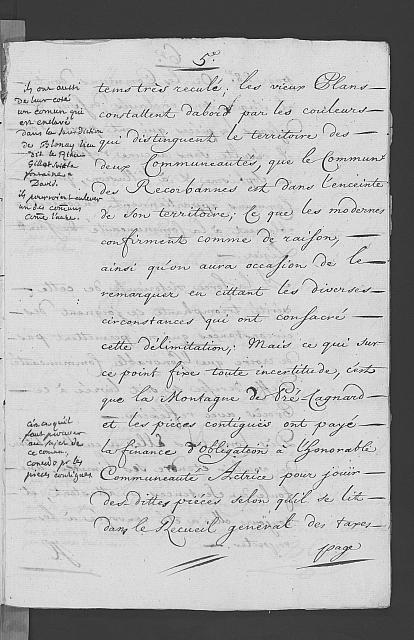 5.e
ils ont aussi
de leur coté
un comun qui
est enclavé
dans la Jurisdiction
de Blonay lieu
dit
fontaine a
David.
ils pourroient enlever
un des comuns
come l'autre.
tems très reculé; les vieux Plans
constattent d'abord par les couleurs
qui distinguent le territoire des
deux Communeautés, que le Commun
des Recorbannes est dans l'enceinte
de son territoire; Ce que les modernes
confirment comme de raison,
ainsi qu'on aura occasion de le
remarquer en cittant les diverses
circonstances qui ont consacré
cette délimitation; Mais ce qui sur
ce point fixe toute incertitude, c'est
que la Montagne de Pré-Cagnard
et les pièces contigues ont payé
la finance d'Obligation à l'honorable
Communeauté Actrice pour jouir
des dittes pièces selon qu'il se lit
dans le Recueil general des taxes
c'est ce qu'il
faut prouver
au sujet de
ce comun,
pièces contigues
page